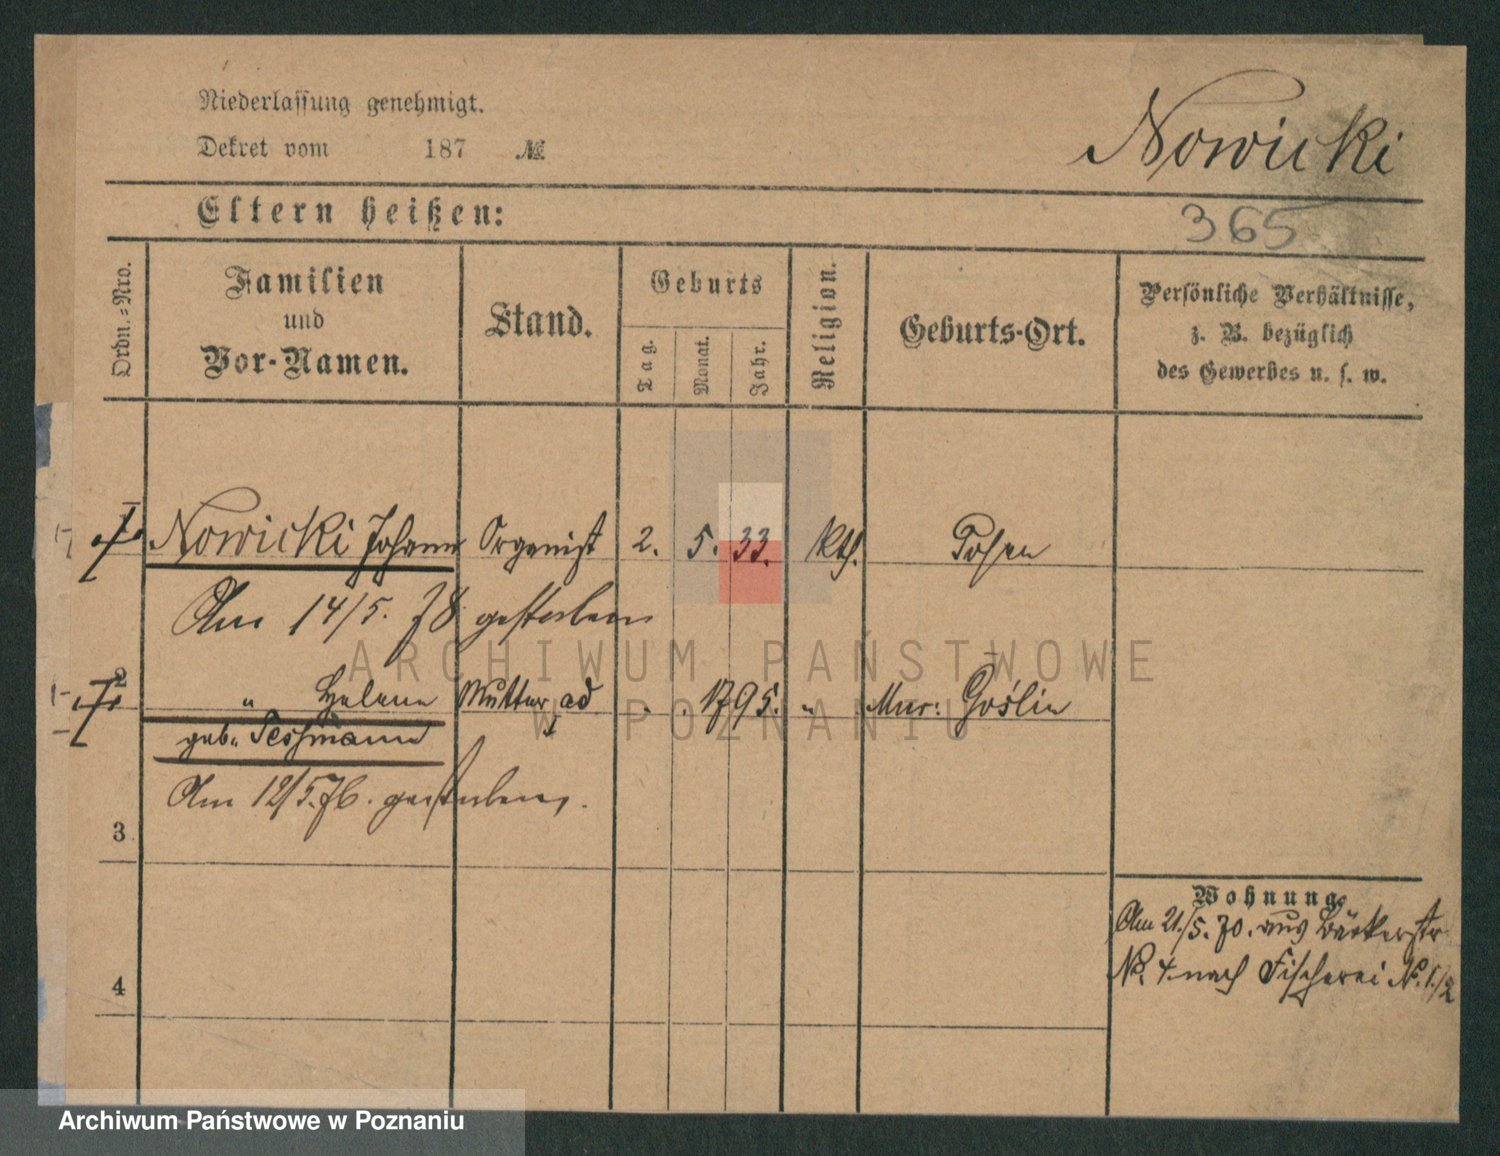 Niederlassung genehmigt.
Dekret vom 187 №
Nowicki
Eltern heißen:
365
Ordn.=Nro.
Familien
und
Vor-Namen.
Stand.
Geburts
Tag.
Monat.
Jahr.
Religion.
Geburts-Ort.
Persönliche Verhältnisse,
z. B. bezüglich
des Gewerbes u. s. w.
1 Nowicki Johann Organist 2. 5. 33. kth. Posen
Am 14/5. 78 gestorben
ARCHIWUM PAŃSTWOWE
W POZNANIU
2 " Helene Mutter ad 1 . . 1795. " Mur: Goślin
geb.
Am 12/5.76. gestorben.
3
4
Wohnung
Am 21./5.70. aus Bäckerstr
No. 4 nach Fischerei No. 1/2
Archiwum Państwowe w Poznaniu